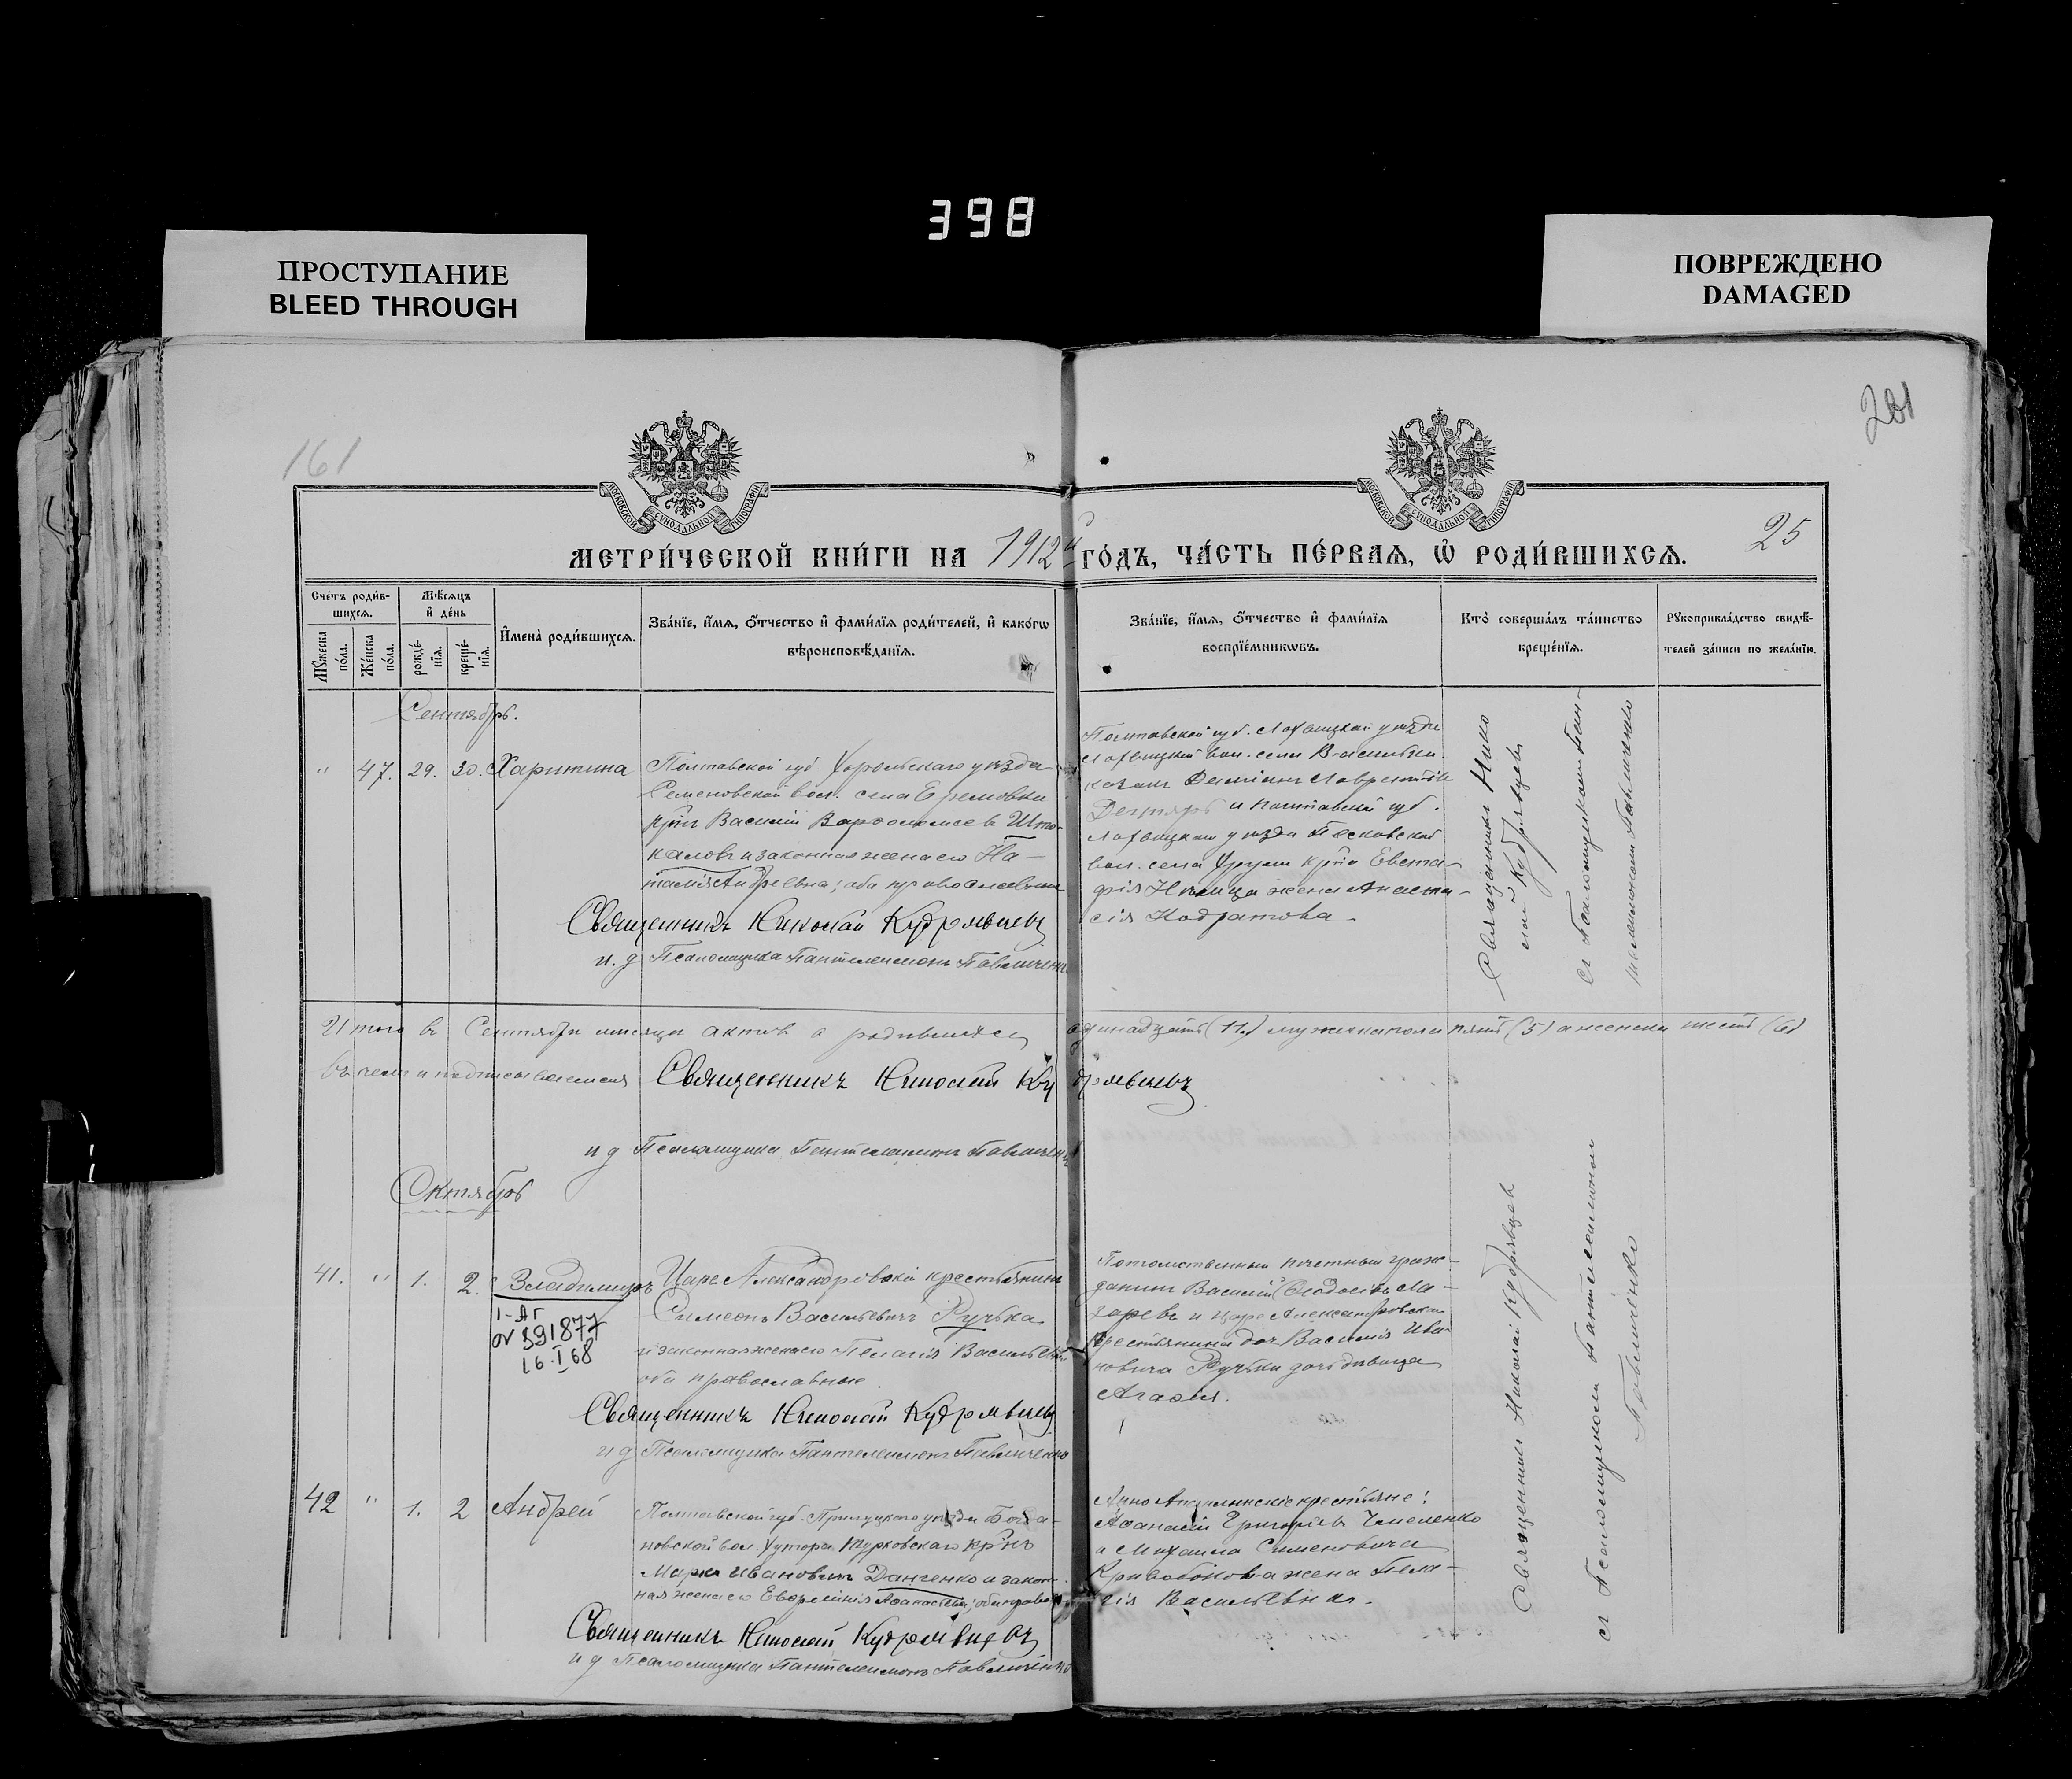 398
ПРОСТУПАНИЕ
BLEED THROUGH
ПОВРЕЖДЕНО
DAMAGED
161
201
25
МОСКОВСКОЙ СѴНОДАЛЬНОЙ ТИПОГРАФІИ
МОСКОВСКОЙ СѴНОДАЛЬНОЙ ТИПОГРАФІИ
МЕТРИ́ЧЕСКОЙ КНИ́ГИ НА 1912 й ГО́ДЪ, ЧА́СТЬ ПЕ́РВАЯ, Ѡ РОДИ́ВШИХСЯ.
Сче́тъ роди́вшихся.
Мꙋ́жеска по́ла.
Же́нска по́ла.
Мѣ́сяцъ и҆ де́нь
рожде́нїя.
креще́нїя.
И҆мена̀ роди́вшихся.
Зва́нїе, и҆́мя, ѻ҆́тчество и҆ фами́лїя роди́телей, и҆ како́гѡ
вѣроисповѣ́данїя.
Зва́нїе, и҆́мя, ѻ҆́тчество и҆ фами́лїя
воспрїе́мникѡвъ.
Кто̀ соверша́лъ та́инство
креще́нїя.
Рꙋкоприкла́дство свидѣ́-
телей за́писи по жела́нїю.
Сентябрь.
" 47. 29. 30. Харитина
Полтавской губ. Хорольскаго уѣзда
Семеновской вол. села Еремовки
крнъ Василій Варѳоломеевъ Што-
каловъ и законная жена его На-
талія Андреевна; оба православные
Священникъ Николай Кудрявцевъ
и. д Псаломщика Пантелеимонъ Павличенко
Полтавской губ. Лохвицкаго уѣзда
Лохвицкой вол. села Васильки
козакъ Даміанъ Лаврентіев
Дегтярь и Полтавской губ.
Лохвицкаго уѣзда Песковской
вол. села
крна Евста-
фія
жена Анаста-
сія Кодратова
Священникъ Нико
лай Кудрявцевъ
съ Псаломщикомъ Пан
телеимономъ Павличенко
Итого въ Сентябрѣ мѣсяцѣ актовъ о родившихся одинадцать (11) мужеска пола пять (5) а женска шесть (6)
въ чемъ и подписываемся Священникъ Николай Кудрявцевъ
и д Псаломщика Пантелеимонъ Павличенко
Октябрь
41. " 1. 2. Владимиръ
1-АГ
№ 391877
16.I 68
Царе Александровскій крестьянинъ
Симеонъ Васильевичъ Ручка
и законная жена его Пелагія Васильевна
оба православные
Священникъ Николай Кудрявцевъ
и д Псаломщика Пантелеимонъ Павличенко
Потомственный почетный граж-
данинъ Василій Ѳеодосіевъ Ла-
заревъ и Царе Александровскаго
крестьянина Василія Ива-
новича Ручки дочь дѣвица
Агаѳія.
Священникъ Николай Кудрявцев
съ Псаломщикомъ Пантелеимономъ
Павличенко
42 " 1. 2 Андрей
Полтавской губ. Прилуцкаго уѣзда Богда-
новской вол. Хутора Турковскаго крнъ
Марко Ивановичъ Данченко и закон-
ная жена его Евфимія Аѳанасіева; оба правосл
Священникъ Николай Кудрявцевъ
и д Псаломщика Пантелеимонъ Павличенко
крестьяне:
Аѳанасій Григоріевъ Чмеленко
и Михаила Симеоновича
Кривобокова жена Пела-
гія Васильевна.